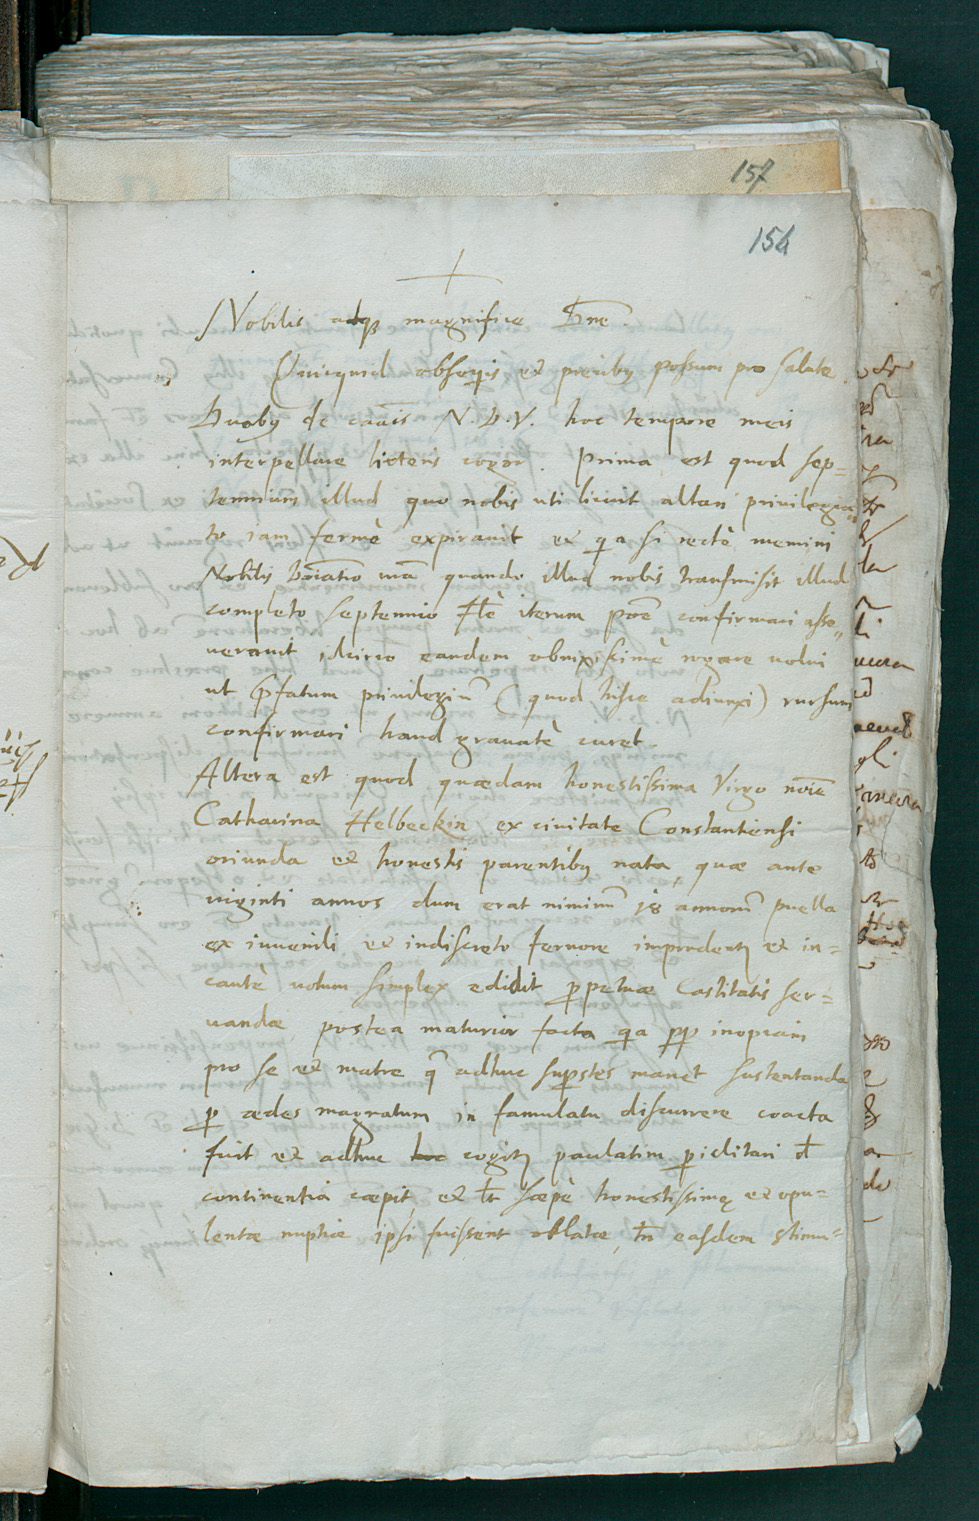 157
154
Nobilis atq3 magnifice Dn̄e.
Quicquid obseq̄iis et precibus possum pro salute.
Duabus de cau̅is N. D. V. hoc tempore meis
interpellare litteris cogor. Prima est quod sep=
tennium illud quo nobis uti licuit altari privilegia=
to iam fermè expiravit et q̄a si rectè memini
Nobilis Do̅i̅atio v̅r̅a̅ quando illud nobis transmisit illud
completo septennio iterum po̅e̅ confirmari asse=
veravit, idcirco eandem obnixissimè rogare volui
ut p̄fatum privilegiu̅ (quod hisce adiunxi) rursum
confirmari haud gravatè curet.
Altera est quod quædam honestissima Virgo no̅i̅e̅
Catharina Helbeckin ex civitate Constantiensi
oriunda et honestis parentibus nata, quæ ante
viginti annos dum erat nimiru̅ 18 annoru̅ puella
ex iuvenili et indiscreto fervore imprudenter et in=
cautè votum simplex edidit p̱petuæ Castitatis ser=
vandæ postea maturior facta q̄a pp̱ inopiam
pro se et matre q̄ adhuc sup̱stes manet sustentanda
p̱ ædes magnatum in famulatu discurrere coacta
fuit et adhuc cogitur paulatim p̱iclitari d̄
continentia cæpit, et lr̄ sæpè honestissimę et opu=
lentæ nuptiæ ipsi fuissent oblatæ, tn̄ easdem stimu=